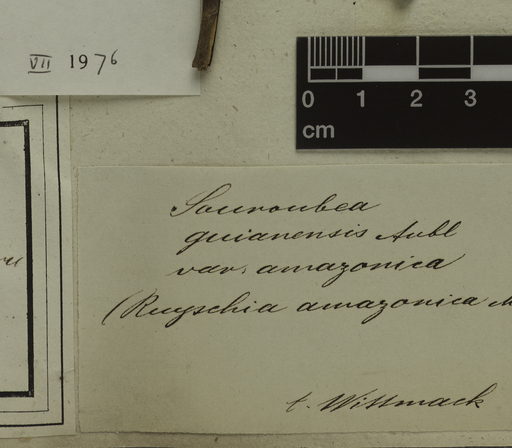 VII 1976
0 1 2 3
cm
Souroubea
guianensis Aubl
var. amazonica
(Ruyschia amazonica M
t. Wittmack